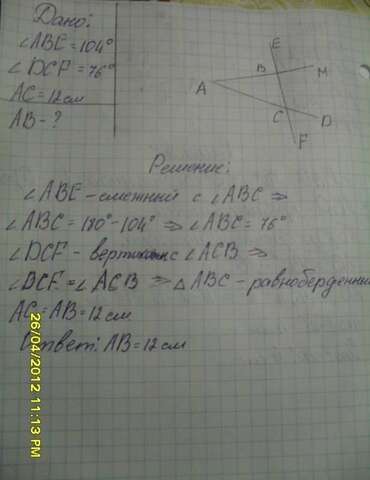 Дано:
∠ABE = 104°
∠DCF = 76°
AC = 12 см
AB - ?
E
B
M
A
C
D
F
Решение:
∠ABE - смежный с ∠ABC ⇒
∠ABC = 180° - 104° ⇒ ∠ABC = 76°
∠DCF - с ∠ACB ⇒
∠DCF = ∠ACB ⇒ △ABC - равноберденный
AC = AB = 12 см
Ответ: AB = 12 см
26/04/2012 11:13 PM